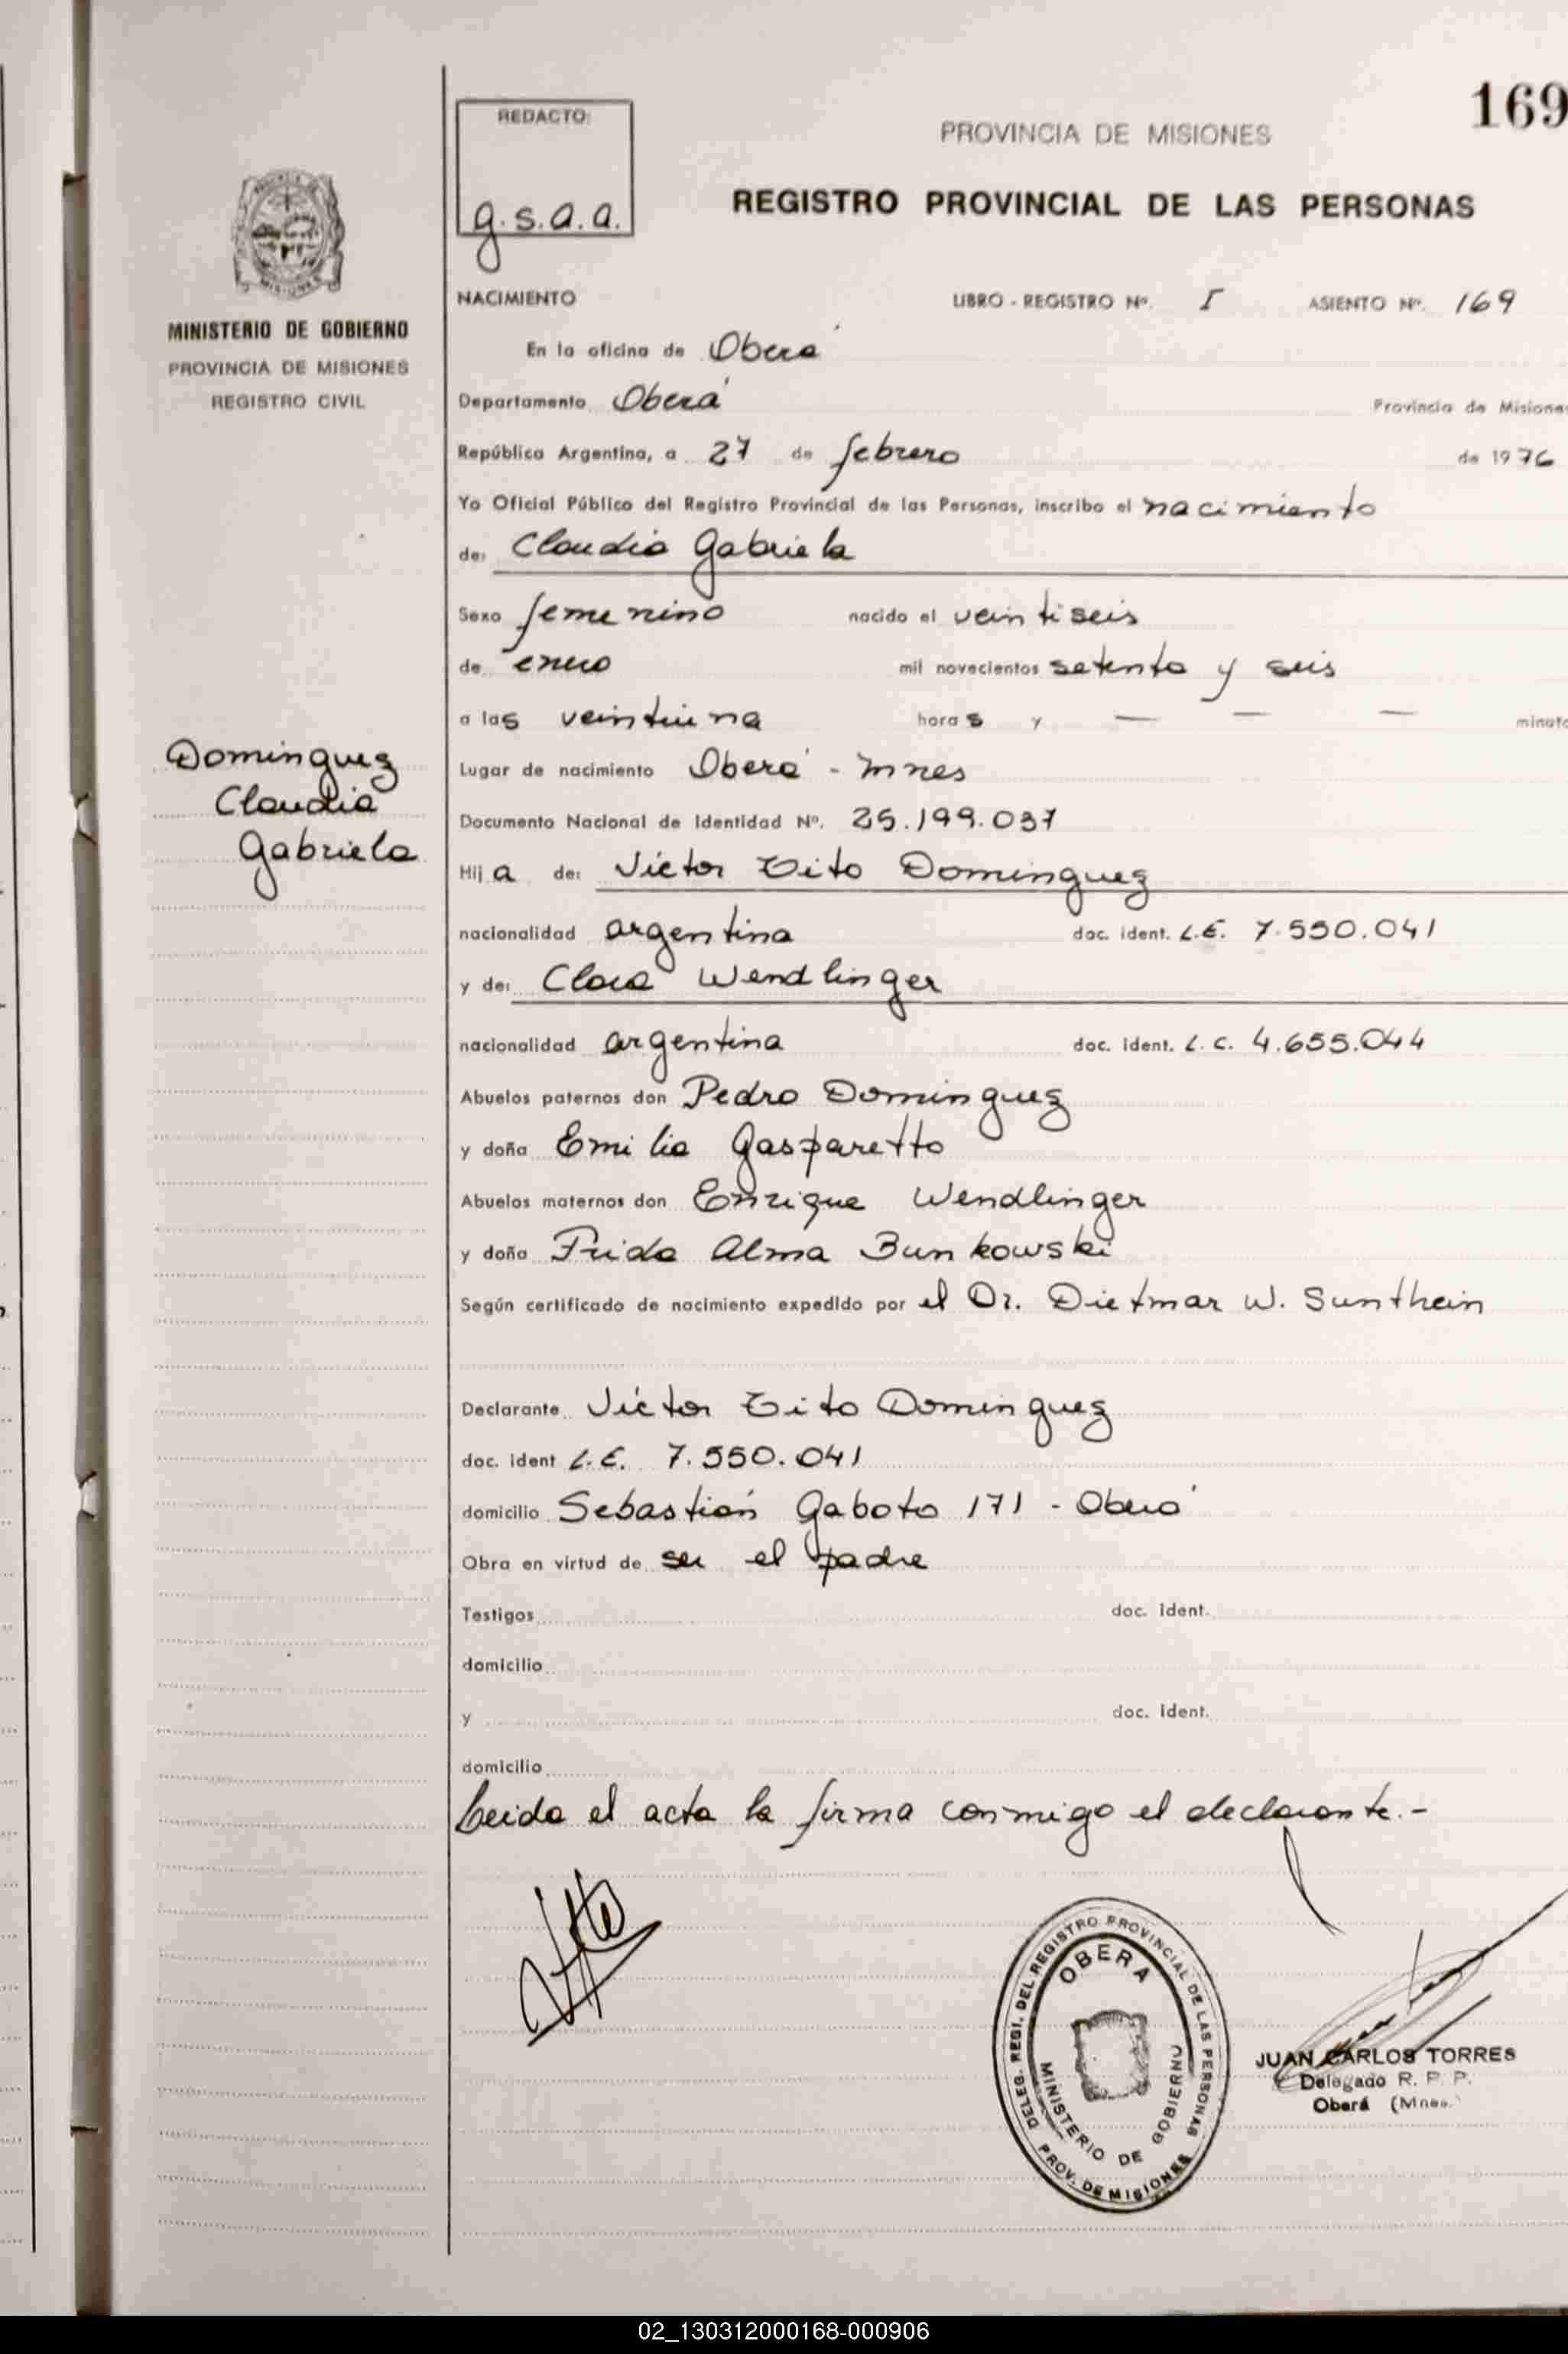 169
REDACTO:
g.s.a.a.
PROVINCIA DE MISIONES
REGISTRO PROVINCIAL DE LAS PERSONAS
MINISTERIO DE GOBIERNO
PROVINCIA DE MISIONES
REGISTRO CIVIL
NACIMIENTO LIBRO - REGISTRO Nº. I ASIENTO Nº. 169
En la oficina de Oberá
Departamento Oberá Provincia de Misiones
República Argentina, a 27 de febrero de 1976
Yo Oficial Público del Registro Provincial de las Personas, inscribo el nacimiento
de: Claudia Gabriela
Sexo femenino nacido el veintiseis
de enero mil novecientos setenta y seis
a las veintiuna horas y — — — minuto
Domínguez
Claudia
Gabriela
Lugar de nacimiento Oberá - Mnes
Documento Nacional de Identidad Nº. 25.199.037
Hija de: Víctor Tito Domínguez
nacionalidad argentina doc. ident. L.E. 7.550.041
y de: Clara Wendlinger
nacionalidad argentina doc. ident. L.C. 4.655.044
Abuelos paternos don Pedro Domínguez
y doña Emilia Gasparetto
Abuelos maternos don Enrique Wendlinger
y doña Frida Alma Bunkowski
Según certificado de nacimiento expedido por el Dr. Dietmar W. Sunthein
Declarante Víctor Tito Domínguez
doc. ident L.E. 7.550.041
domicilio Sebastián Gaboto 171 - Oberá
Obra en virtud de ser el padre
Testigos doc. ident.
domicilio
y doc. ident.
domicilio
Leída el acta la firma conmigo el declarante.-
DELEG. REGI. DEL REGISTRO PROVINCIAL DE LAS PERSONAS
OBERA
MINISTERIO DE GOBIERNO
PROV. DE MISIONES
JUAN CARLOS TORRES
Delegado R. P. P.
Oberá (Mnes.)
02_130312000168-000906